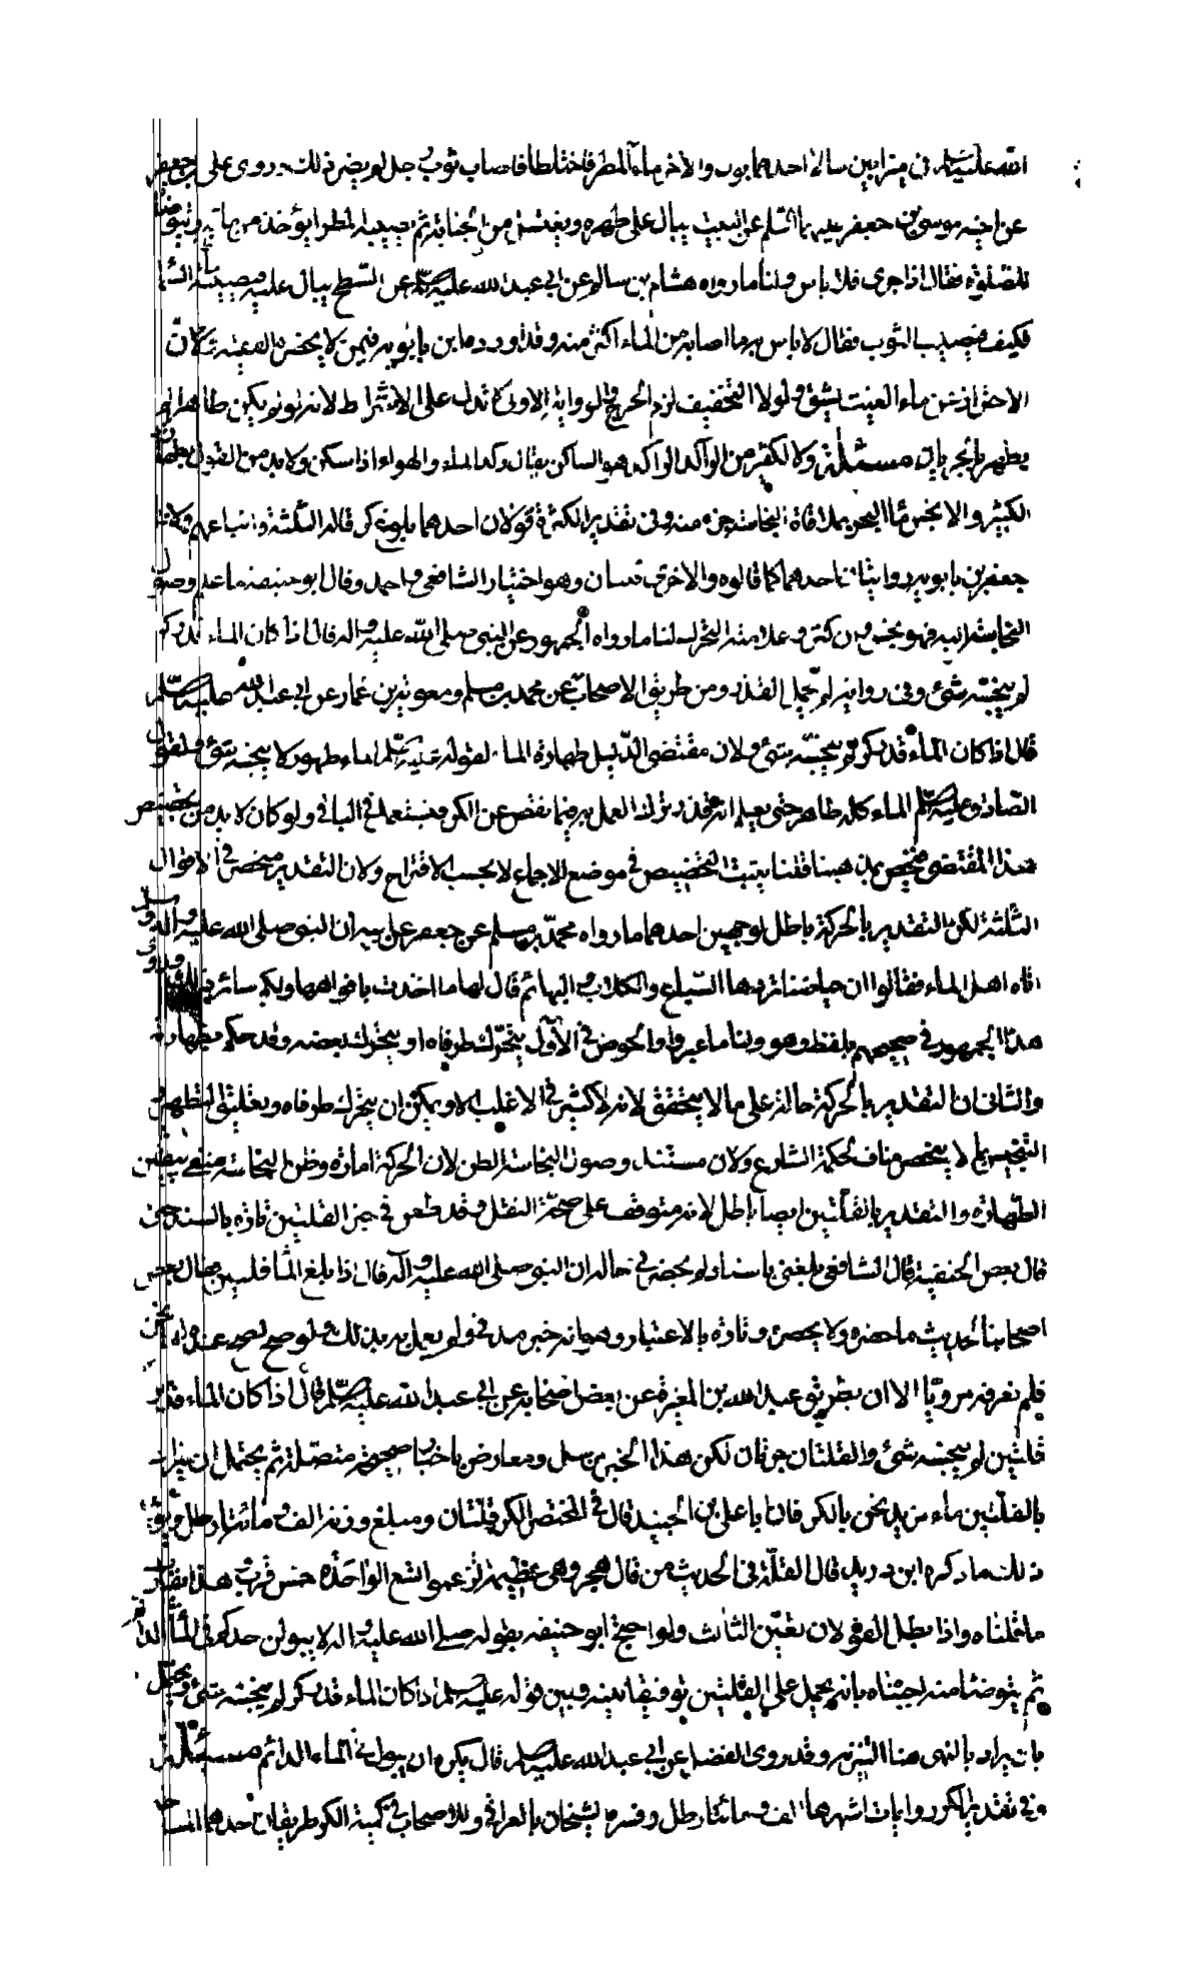 الله عليه السلام في ميزابين سالا احدهما بول والاخر ماء المطر فاختلطا فاصاب ثوب رجل لم يضر ذلك وروى علي بن جعفر
عن اخيه موسى بن جعفر عليهما السلم عن البيت يبال على ظهره ويغتسل من الجنابة ثم يصيبه المطر ايؤخذ من مائه ويتوضأ
للصلوة فقال اذا جرى فلا باس ولنا ما رواه هشام بن سالم عن ابي عبد الله عليه السلم عن السطح يبال عليه فيصيبه السماء
فكيف فيصيب الثوب فقال لا باس به ما اصابه من الماء اكثر منه وقد اورده ابن بابويه فيمن لا يحضره الفقيه ولان
الاحتراز من ماء الغيث يشق ولولا التخفيف لزم الحرج والرواية الاولى لا تدل على الاشتراط لانه لو لم يكن طاهرا لم
يطهر بالجريان مسئلة ولا الكثير من الراكد الراكد هو الساكن يقال ركد الماء والهواء اذا سكن ولا بد من القول بطهارة
الكثير والا نجس ماء البحر بملاقاة النجاسة جزء منه وفي تقدير الكثرة قولان احدهما بلوغ كر قاله الثلثة واتباعهم ولابي
جعفر بن بابويه روايتان احدهما كما قالوه والاخرى قلتان وهو اختيار الشافعي واحمد وقال ابو حنيفة ما علم وصول
النجاسة اليه فهو نجس وان كثر وعلامته التحرك لنا ما رواه الجمهور عن النبي صلى الله عليه واله قال اذا كان الماء قدر كر
لم ينجسه شئ وفي رواية لم يحمل القذر ومن طريق الاصحاب عن محمد بن مسلم ومعوية بن عمار عن ابي عبد الله عليه السلم
قال اذا كان الماء قدر كر لم ينجسه شئ ولان مقتضى الدليل طهارة الماء لقوله عليه السلم الماء طهور لا ينجسه شئ ولقول
الصادق عليه السلم الماء كله طاهر حتى يعلم انه قذر ترك العمل به فيما نقص عن الكر فيستعمل في الباقي ولو كان لا بد من تخصيص
هذا المقتضى فيخص بمذهبنا قلنا يثبت التخصيص في موضع الاجماع لا بحسب الاقتراح ولان التقدير منحصر في الاقوال
الثلثة لكن التقدير بالحركة باطل لوجهين احدهما ما رواه محمد بن مسلم عن جعفر عن ابيه ان النبي صلى الله عليه واله وسلم
اتاه اهل الماء فقالوا ان حياضنا تردها السباع والكلاب والبهائم قال لها ما اخذت بافواهها ولكم سائر ذلك وروى
هذا الجمهور في صحيحهم بلفظ وهو ولنا ما غبر والحوض في الاول يتحرك طرفاه او يتحرك بعضه وقد حكم بطهارته
والثاني ان التقدير بالحركة حالة على ما لا يتحقق لانه لا كثير في الاغلب الا ويمكن ان يتحرك طرفاه وتعليق التطهير و
التنجيس بما لا ينحصر مناف لحكمة الشارع ولان مستند وصول النجاسة الظن لان الحركة امارة وظن النجاسة مع تيقن
الطهارة والتقدير بالقلتين ايضا باطل لانه متوقف على صحة النقل وقد طعن في خبر القلتين تارة بالسند حتى
قال بعض الحنفية قال الشافعي بلغني باسناد لم يحضرني حاله ان النبي صلى الله عليه وآله قال اذا بلغ الماء قلتين وقال بعض
اصحابنا الحديث ما حضره ولا يحضره وتارة بالاعتبار وهو انه خبر مدني ولم يعمل به مالك ولو صح لصح عنده اما نحن
فلم نعرفه مرويا الا ان بطريق عبد الله بن المغيرة عن بعض اصحابه عن ابي عبد الله عليه السلم قال اذا كان الماء قدر
قلتين لم ينجسه شئ والقلتان جرتان لكن هذا الخبر مرسل ومعارض باخبار صحيحة متصلة ثم يحتمل ان يراد
بالقلتين ماء يزيد نحن بالكر فان ابا علي بن الجنيد قال في المختصر الكر قلتان ومبلغ وزنه الف ومائتا رطل ويؤيد
ذلك ما ذكره ابن دريد قال القلة في الحديث من قلال هجر وهي عظيمة زعموا تسع الواحدة خمس قرب هذا مقدار
ما قلناه واذا بطل القولان تعين الثالث ولو احتج ابو حنيفة بقوله صلى الله عليه واله لا يبولن احدكم في الماء الدائم
ثم يتوضأ منه اجبناه بانه يحمل على القلتين توفيقا بينه وبين قوله عليه السلم اذا كان الماء قدر كر لم ينجسه شئ ويحتمل
بان يراد بالنهي هنا التنزيه وقد روى الفضل عن ابي عبد الله عليه السلم قال يكره ان يبول في الماء الدائم مسئلة
وفي تقدير الكر روايات اشهرها الف ومائتا رطل وفسره الشيخان بالعراقي وللاصحاب في كمية الكر طريقان احدهما المساحة